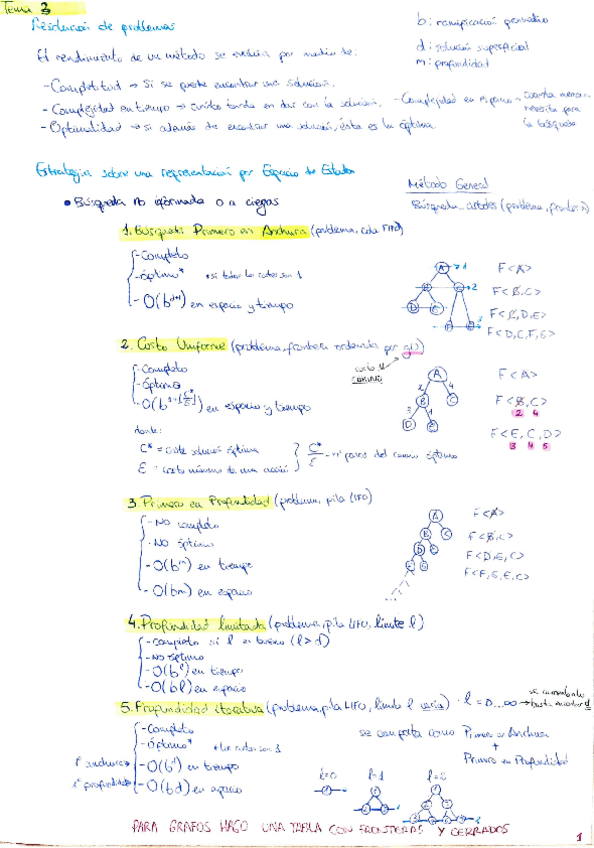 Tema 3
Resolución de problemas
b: ramificación promedio
d: solución superficial
m: profundidad
El rendimiento de un método se evalúa por medio de:
- Completitud → si se puede encontrar una solución.
- Complejidad en tiempo → cuánto tarda en dar con la solución. - Complejidad en espacio → cuanta memoria
necesita para
la búsqueda
- Optimalidad → si además de encontrar una solución, ésta es la óptima.
Estrategias sobre una representación por Espacio de Estados
Método General
• Búsqueda no informada o a ciegas
Búsqueda_arboles (problema, frontera)
1. Búsqueda Primero en Anchura (problema, cola FIFO)
- Completo
- óptimo* * si todos los costes son 1
- O(b^d+1) en espacio y tiempo
A → 1
B C → 2
D E
F G 3
F<A>
F<B,C>
F<C,D,E>
F<D,C,F,G>
2. Costo Uniforme (problema, frontera ordenada por g())
costo del
camino
- Completo
- óptimo
- O(b^1+[C*/ε]) en espacio y tiempo
donde:
C* = coste solución óptima
ε = costo mínimo de una acción
C*/ε → nº pasos del camino óptimo
A
2 4
B C
3 1
D E
F<A>
F<B,C>
2 4
F<E,C,D>
3 4 5
3 Primero en Profundidad (problema, pila LIFO)
- No completo
- No óptimo
- O(b^m) en tiempo
- O(bm) en espacio
A
B C
D E
F G
F<A>
F<B,C>
F<D,E,C>
F<F,G,E,C>
4. Profundidad limitada (problema, pila LIFO, límite l)
- completo si l es bueno (l>d)
- No óptimo
- O(b^l) en tiempo
- O(bl) en espacio
5. Profundidad iterativa (problema, pila LIFO, límite l varía) · l = 0...∞ →
hasta encontrar d
- Completo
- óptimo* * los costes son 1
1º anchura → - O(b^d) en tiempo
1º profundidad → - O(bd) en espacio
se comporta como Primero en Anchura
+
Primero en Profundidad
l=0 l=1 l=2
PARA GRAFOS HAGO UNA TABLA CON FRONTERAS Y CERRADOS
1